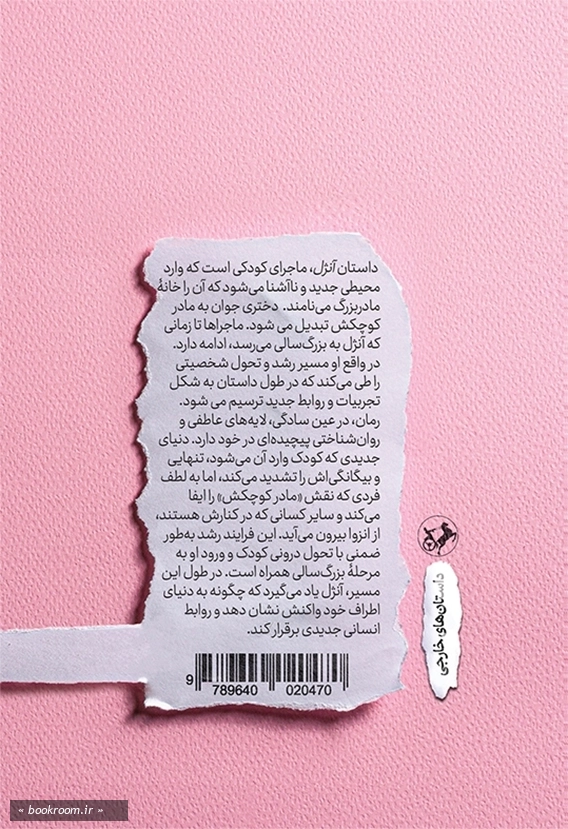 داستان آنژل، ماجرای کودکی است که وارد
محیطی جدید و ناآشنا می‌شود که آن را خانهٔ
مادربزرگ می‌نامند. دختری جوان به مادر
کوچکش تبدیل می شود. ماجراها تا زمانی
که آنژل به بزرگ‌سالی می‌رسد، ادامه دارد.
در واقع او مسیر رشد و تحول شخصیتی
را طی می‌کند که در طول داستان به شکل
تجربیات و روابط جدید ترسیم می شود.
رمان، در عین سادگی، لایه‌های عاطفی و
روان‌شناختی پیچیده‌ای در خود دارد. دنیای
جدیدی که کودک وارد آن می‌شود، تنهایی
و بیگانگی‌اش را تشدید می‌کند، اما به لطف
فردی که نقش «مادر کوچکش» را ایفا
می‌کند و سایر کسانی که در کنارش هستند،
از انزوا بیرون می‌آید. این فرایند رشد به‌طور
ضمنی با تحول درونی کودک و ورود او به
مرحلهٔ بزرگ‌سالی همراه است. در طول این
مسیر، آنژل یاد می‌گیرد که چگونه به دنیای
اطراف خود واکنش نشان دهد و روابط
انسانی جدیدی برقرار کند.
9 789640 020470
داستان‌های خارجی
« bookroom.ir »